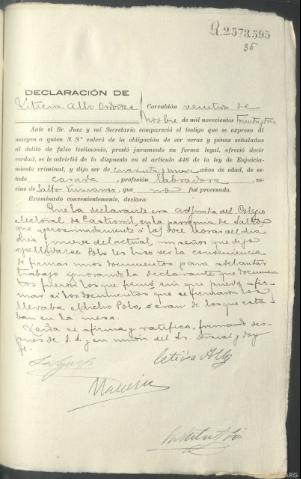 R.2573.595
36
DECLARACIÓN DE
Corcubión veintise de
de mil novecientos treinta y tres
Ante el Sr. Juez y mi Secretario compareció el testigo que se expresa di
margen a quien S. Sª enteró de la obligación de ser veraz y penas señaladas
al delito de falso testimonio, prestó juramento en forma legal, ofreció decir
verdad, se le advirtió de lo dispuesto en el artículo 446 de la ley de Enjuicia-
miento criminal, y dijo ser de cuarenta y años de edad, de es-
tado casada, profesión labradora, ve-
cino de que no fué procesado.
Examinado convenientemente, declara:
Que la declarante era adjunta del Colegio
electoral de en la parroquia de Salto
que aproximadamente a las doce horas del día
del actual, un señor que dijo
apellidarse Polo les hizo ver la conveniencia
de firmar unos documentos para adelantar
trabajo ignorando la declarante que documen-
tos fueran los que firmó sin que pueda afir-
mar si los documentos que se firmaban los
llevaba dicho Polo, o eran de los que esta-
ban en la mesa.
Leída se afirma y ratifica, firmando des-
pués de S.S. y en unión del Sr. Fiscal y doy
fé.